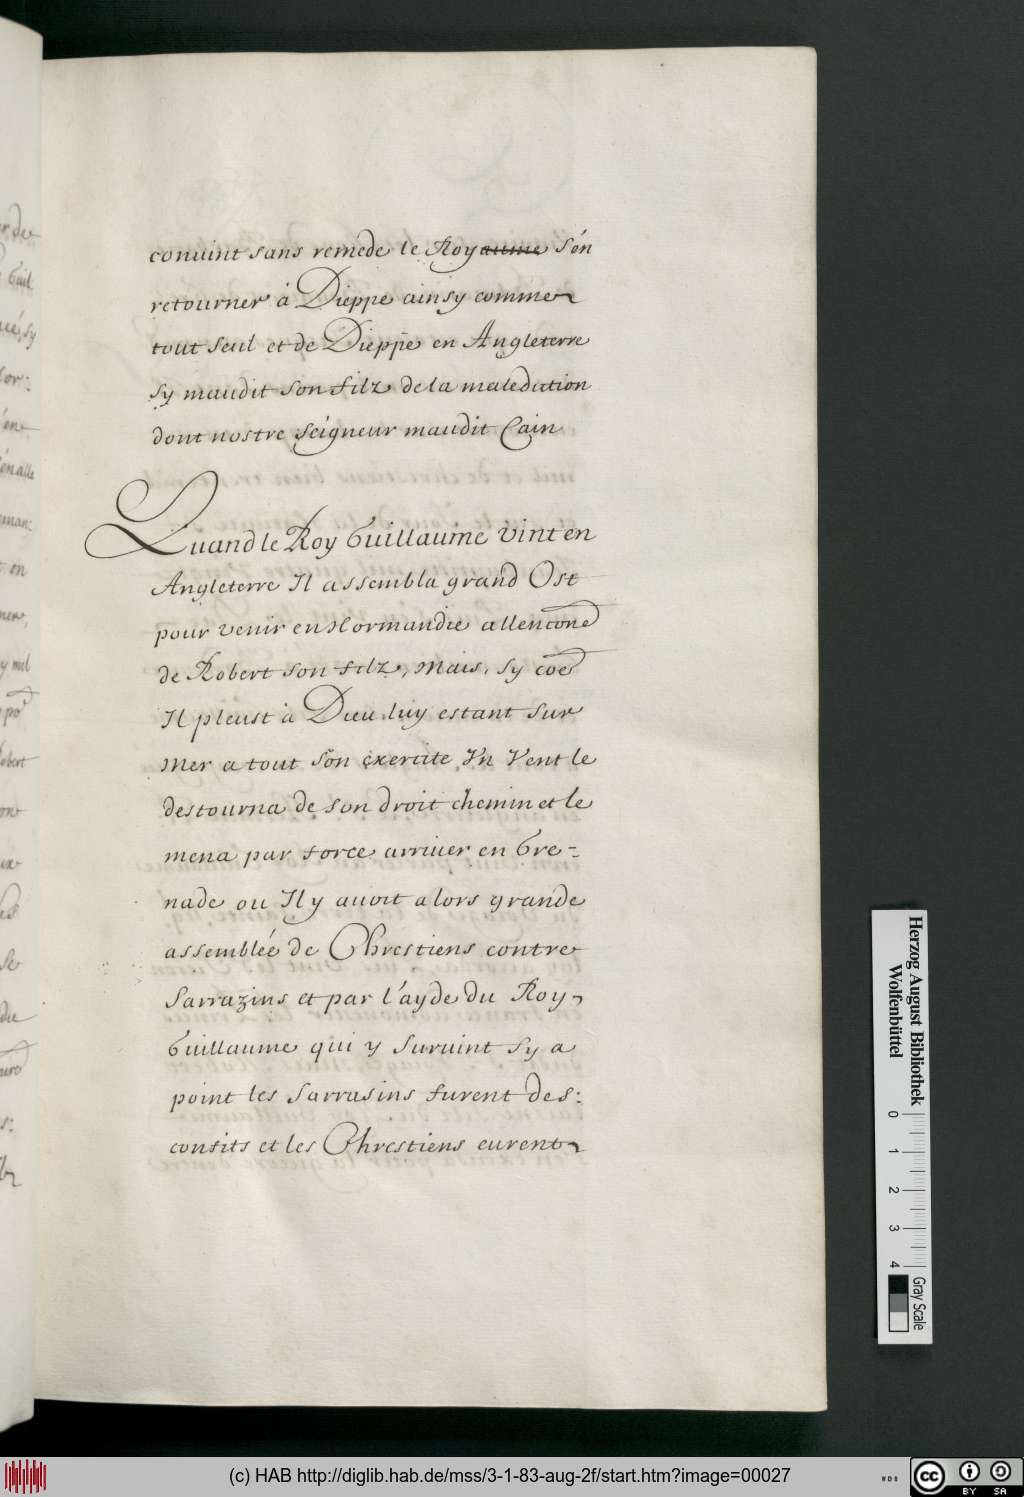 convint sans remede le Royaume s'én
retourner à Dieppe ainsy comme
tout seul et de Dieppe en Angleterre
sy maudit son filz de la malediction
dont nostre seigneur maudit Cain
Quand le Roy Guillaume vint en
Angleterre Il assembla grand Ost
pour venir en Normandie allencone
de Robert son filz, mais, sy coe
Il pleust à Dieu luy estant sur
mer a tout són exercite Vn Vent le
destourna de son droit chemin et le
mena par force arriuer en Gre-
nade ou Il y auoit alors grande
assemblée de Chrestiens contre
Sarrazins et par l'ayde du Roy
Guillaume qui y suruint sy a
point les sarrasins furent des:
confits et les Chrestiens eurent
Herzog August Bibliothek
Wolfenbüttel
0 1 2 3 4
Gray Scale
(c) HAB http://diglib.hab.de/mss/3-1-83-aug-2f/start.htm?image=00027
cc BY SA